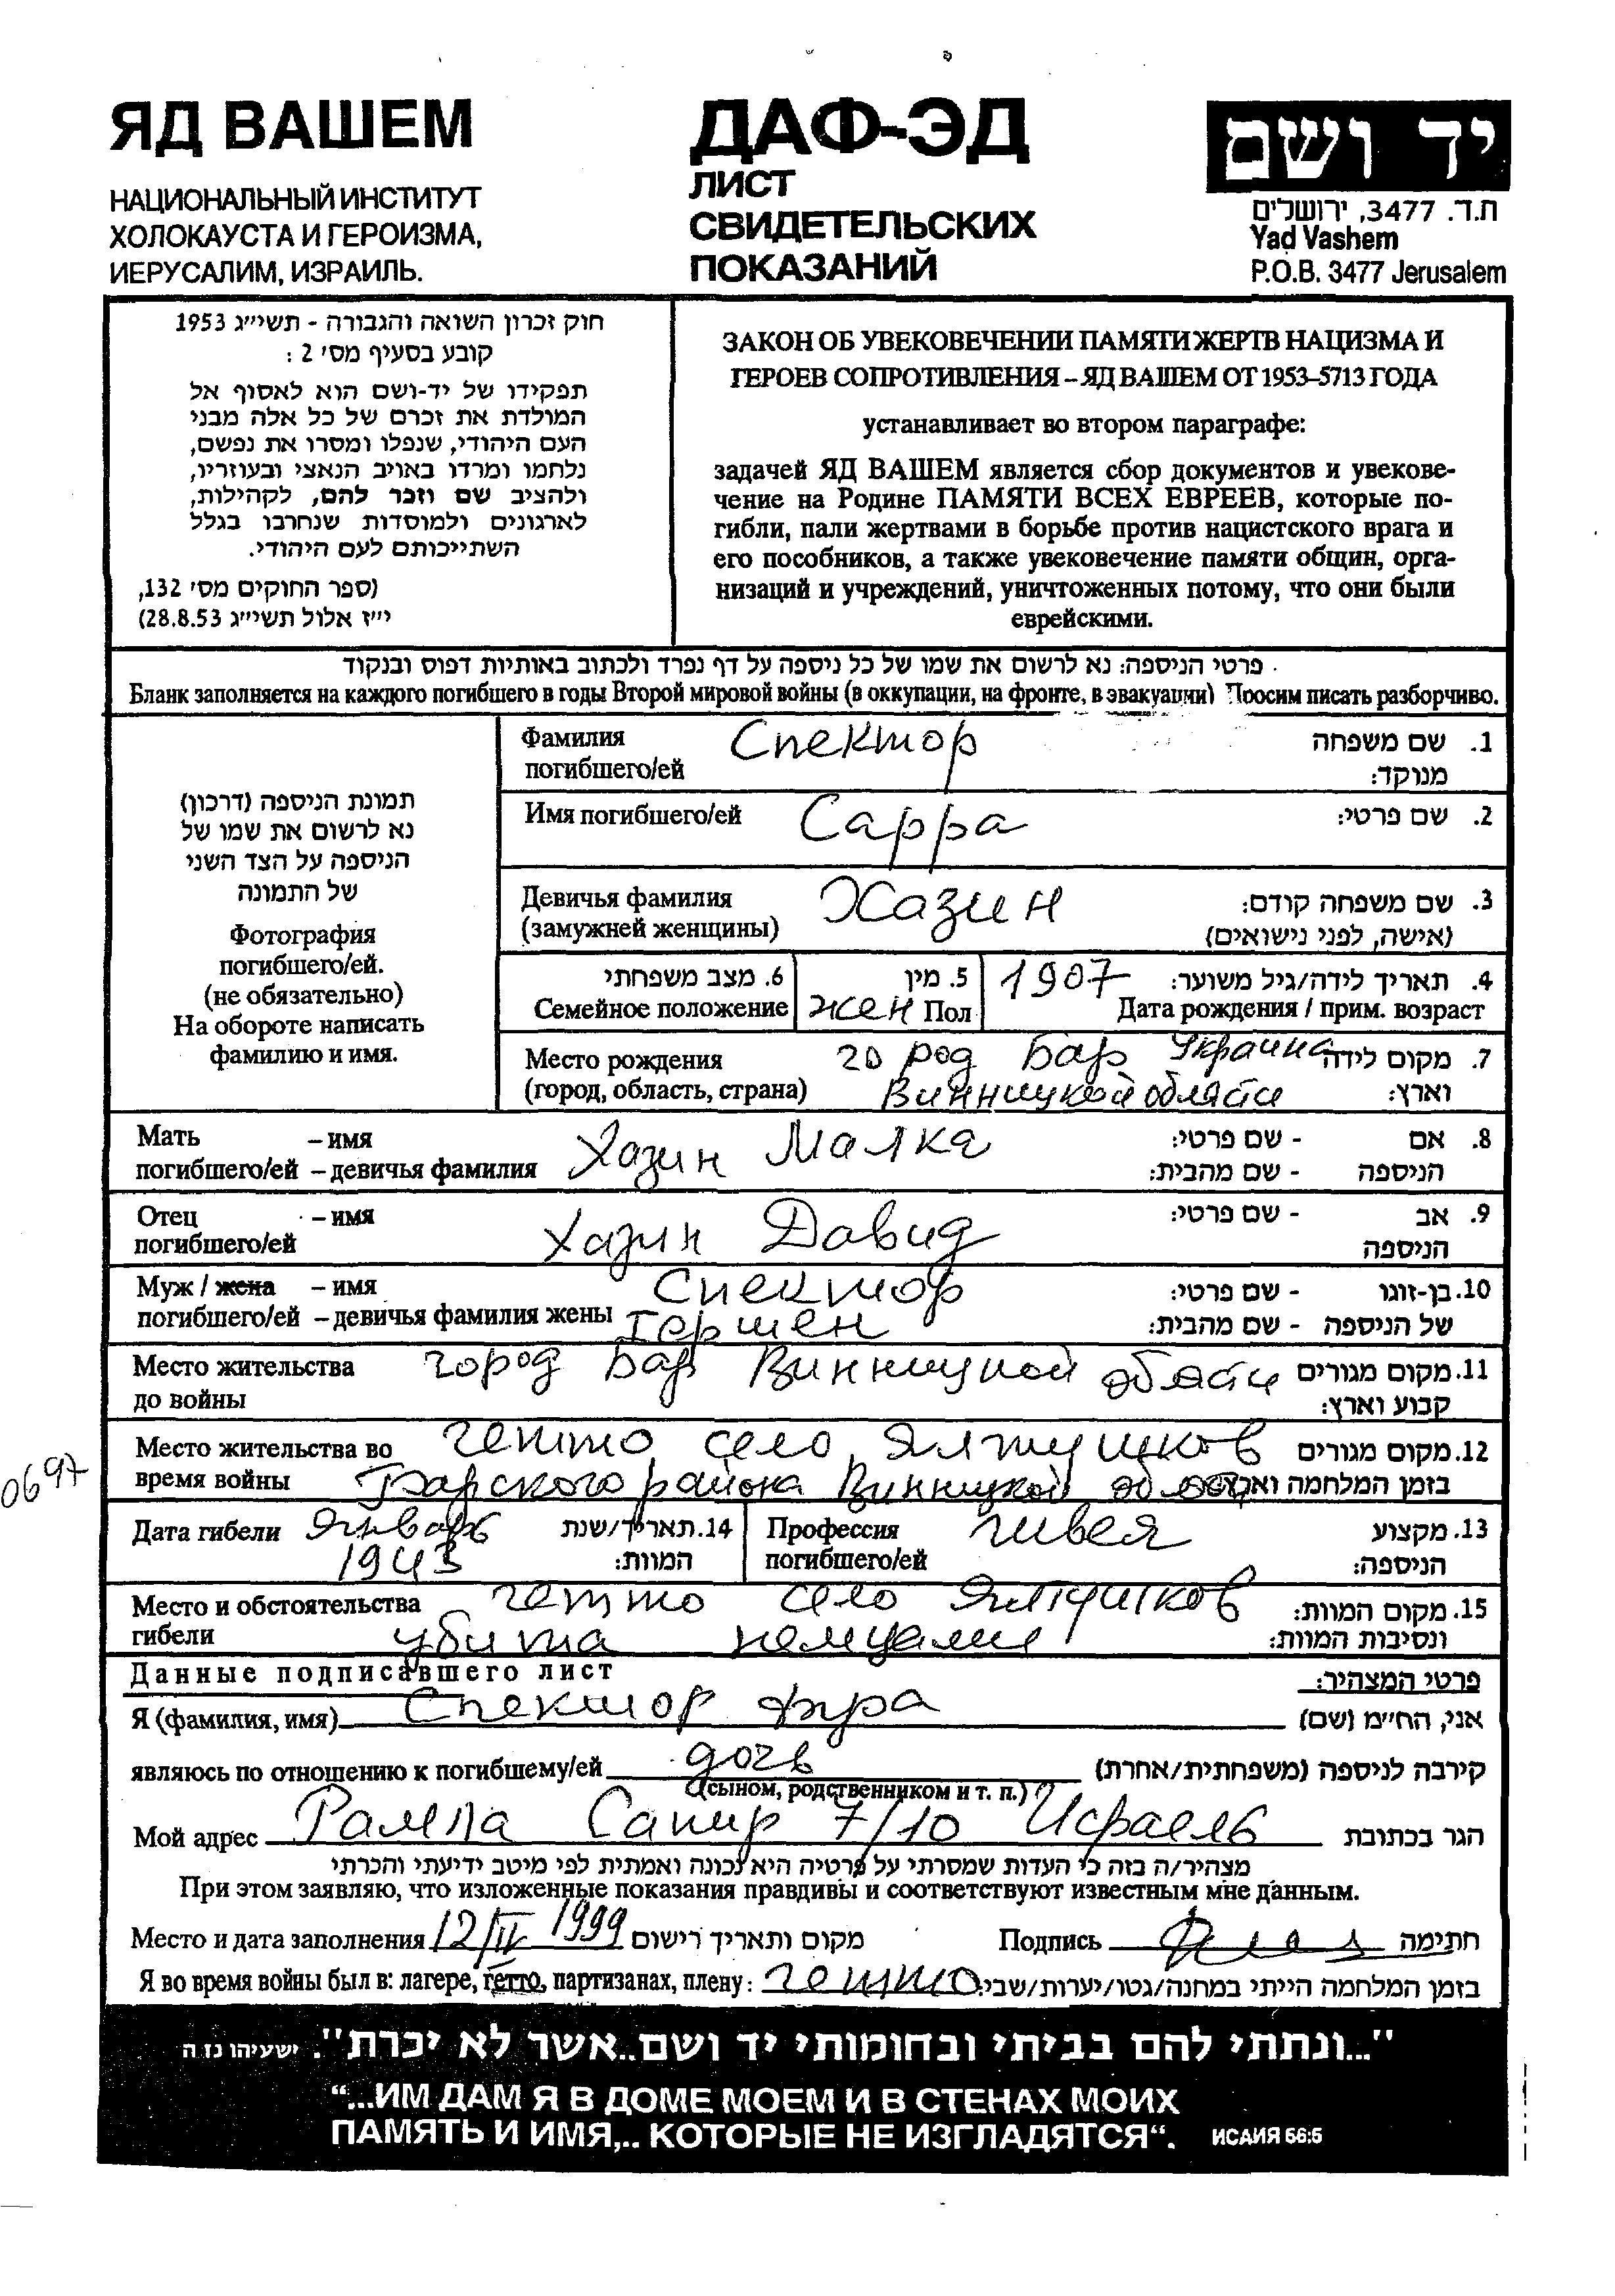 ЯД ВАШЕМ
НАЦИОНАЛЬНЫЙ ИНСТИТУТ
ХОЛОКАУСТА И ГЕРОИЗМА,
ИЕРУСАЛИМ, ИЗРАИЛЬ.
ДАФ-ЭД
ЛИСТ
СВИДЕТЕЛЬСКИХ
ПОКАЗАНИЙ
יד ושם
ת.ד. 3477, ירושלים
Yad Vashem
P.O.B. 3477 Jerusalem
חוק זכרון השואה והגבורה - תשי״ג 1953
קובע בסעיף מס׳ 2 :
תפקידו של יד-ושם הוא לאסוף אל
המולדת את זכרם של כל אלה מבני
העם היהודי, שנפלו ומסרו את נפשם,
נלחמו ומרדו באויב הנאצי ובעוזריו,
ולהציב שם וזכר להם, לקהילות,
לארגונים ולמוסדות שנחרבו בגלל
השתייכותם לעם היהודי.
(ספר החוקים מס׳ 132,
י״ז אלול תשי״ג 28.8.53)
ЗАКОН ОБ УВЕКОВЕЧЕНИИ ПАМЯТИ ЖЕРТВ НАЦИЗМА И
ГЕРОЕВ СОПРОТИВЛЕНИЯ – ЯД ВАШЕМ ОТ 1953–5713 ГОДА
устанавливает во втором параграфе:
задачей ЯД ВАШЕМ является сбор документов и увекове-
чение на Родине ПАМЯТИ ВСЕХ ЕВРЕЕВ, которые по-
гибли, пали жертвами в борьбе против нацистского врага и
его пособников, а также увековечение памяти общин, орга-
низаций и учреждений, уничтоженных потому, что они были
еврейскими.
פרטי הניספה: נא לרשום את שמו של כל ניספה על דף נפרד ולכתוב באותיות דפוס ובנקוד
Бланк заполняется на каждого погибшего в годы Второй мировой войны (в оккупации, на фронте, в эвакуации) Просим писать разборчиво.
תמונת הניספה (דרכון)
נא לרשום את שמו של
הניספה על הצד השני
של התמונה
Фотография
погибшего/ей.
(не обязательно)
На обороте написать
фамилию и имя.
Фамилия Спектор 1. שם משפחה
погибшего/ей מנוקד:
Имя погибшего/ей Сарра 2. שם פרטי:
Девичья фамилия Хазин 3. שם משפחה קודם:
(замужней женщины) (אישה, לפני נישואים)
6. מצב משפחתי 5. מין 1907 4. תאריך לידה/גיל משוער:
Семейное положение жен Пол Дата рождения / прим. возраст
Место рождения город Бар Украина 7. מקום לידה
(город, область, страна) Винницкой области וארץ:
Мать – имя Хазин Малка 8. אם - שם פרטי:
погибшего/ей – девичья фамилия הניספה - שם מהבית:
Отец – имя Хазин Давид 9. אב - שם פרטי:
погибшего/ей הניספה
Муж / жена – имя Спектор 10. בן-זוגו - שם פרטי:
погибшего/ей – девичья фамилия жены Гершен של הניספה - שם מהבית:
Место жительства город Бар Винницкой области 11. מקום מגורים
до войны קבוע וארץ:
Место жительства во гетто село Ялтушков 12. מקום מגורים
время войны Барского района Винницкой област בזמן המלחמה וארץ
0697
Дата гибели Январь 14. תאריך/שנת Профессия швея 13. מקצוע
1943 המוות: погибшего/ей הניספה:
Место и обстоятельства гетто село Ялтушков 15. מקום המוות:
гибели убита немцами ונסיבות המוות:
Данные подписавшего лист פרטי המצהיר:
Я (фамилия, имя) Спектор Фира אני, הח״מ (שם)
являюсь по отношению к погибшему/ей дочь קירבה לניספה (משפחתית/אחרת)
(сыном, родственником и т. п.)
Мой адрес Рамла Сапир 7/10 Исраель הגר בכתובת
מצהיר/ה בזה כי העדות שמסרתי על פרטיה היא נכונה ואמתית לפי מיטב ידיעתי והכרתי
При этом заявляю, что изложенные показания правдивы и соответствуют известным мне данным.
Место и дата заполнения 12/IV 1999 מקום ותאריך רישום Подпись חתימה
Я во время войны был в: лагере, гетто, партизанах, плену: гетто בזמן המלחמה הייתי במחנה/גטו/יערות/שבי:
"...ונתתי להם בביתי ובחומותי יד ושם..אשר לא יכרת". ישעיהו נז ה
“...ИМ ДАМ Я В ДОМЕ МОЕМ И В СТЕНАХ МОИХ
ПАМЯТЬ И ИМЯ,.. КОТОРЫЕ НЕ ИЗГЛАДЯТСЯ“. ИСАИЯ 56:5